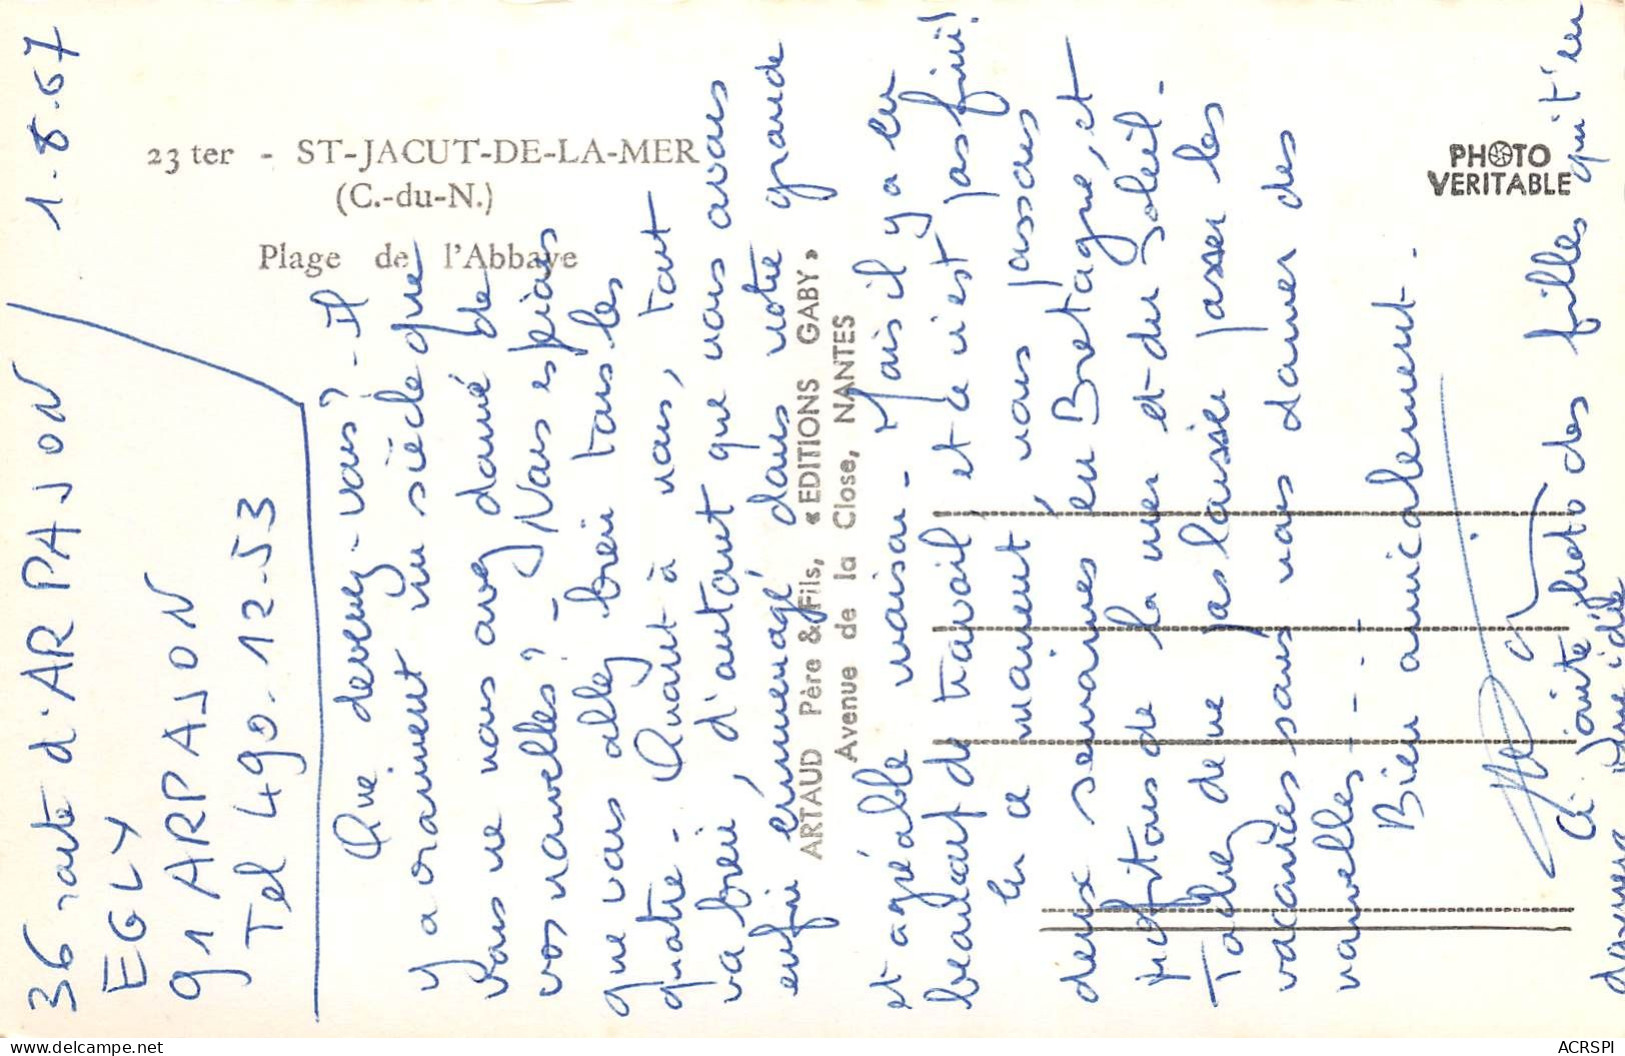 23 ter - ST-JACUT-DE-LA-MER
(C.-du-N.)
Plage de l'Abbaye
PHOTO
VERITABLE
ARTAUD Père & Fils, « EDITIONS GABY »
Avenue de la Close, NANTES
36 route d'ARPAJON
1-8-67
EGLY
91 ARPAJON
Tel 490-12-53
Que devenez-vous? - Il
y a vraiment un siècle que
vous ne nous avez donné de
vos nouvelles? - Nous espérons
que vous allez bien tous les
quatre - Quant à nous, tout
va bien, d'autant que nous avons
enfin emménagé dans notre grande
et agréable maison - Mais il y a eu
beaucoup de travail, et ce n'est pas fini!
En ce moment, nous passons
deux semaines en Bretagne, et
profitons de la mer et du soleil -
Tachez de ne pas laisser passer les
vacances sans nous donner des
nouvelles - - -
Bien amicalement -
Ci-jointe photo des filles qui t'en
donnera une idée
ACRSPI